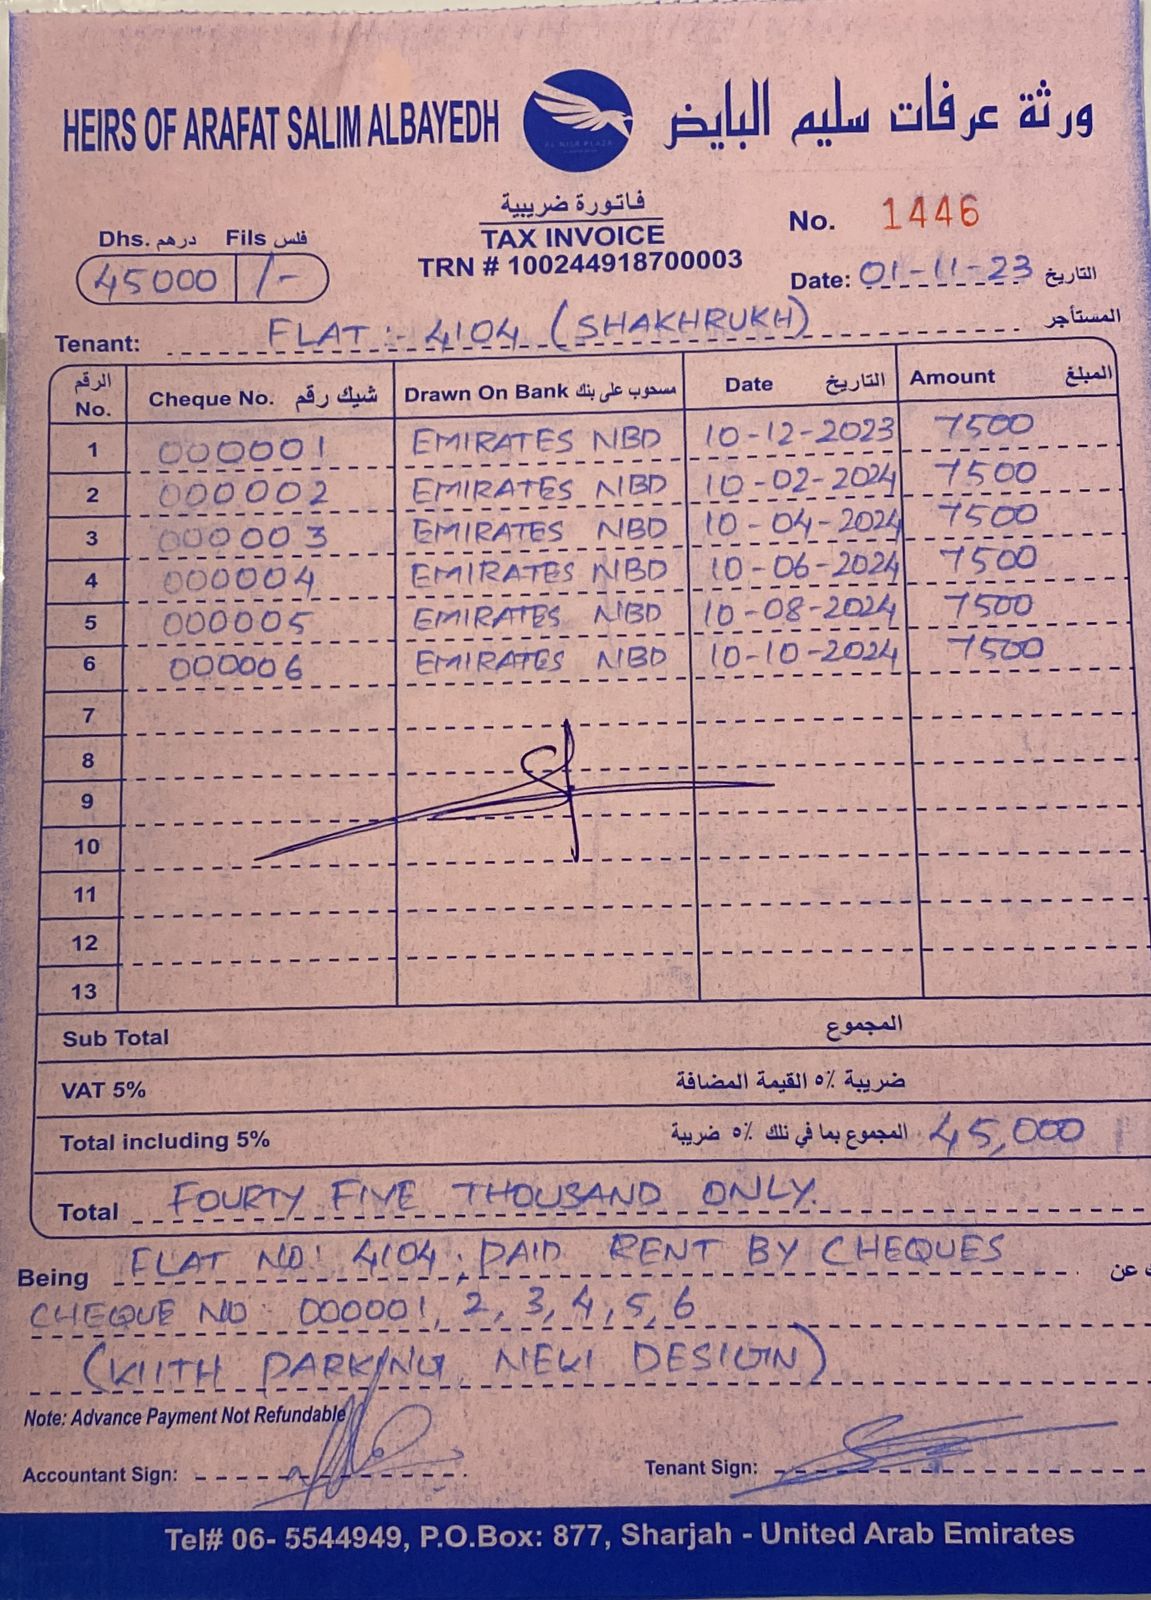 HEIRS OF ARAFAT SALIM ALBAYEDH ورثة عرفات سليم البايض
AL NISR PLAZA
فاتورة ضريبية
TAX INVOICE
TRN # 100244918700003
No. 1446
Dhs. درهم Fils فلس
45000 /-
Date: 01-11-23 التاريخ
Tenant: FLAT :- 4104 (SHAKHRUKH) المستأجر
الرقم No. Cheque No. شيك رقم Drawn On Bank مسحوب على بنك Date التاريخ Amount المبلغ
1 000001 EMIRATES NBD 10-12-2023 7500
2 000002 EMIRATES NBD 10-02-2024 7500
3 000003 EMIRATES NBD 10-04-2024 7500
4 000004 EMIRATES NBD 10-06-2024 7500
5 000005 EMIRATES NBD 10-08-2024 7500
6 000006 EMIRATES NBD 10-10-2024 7500
7
8
9
10
11
12
13
Sub Total المجموع
VAT 5% ضريبة ٥٪ القيمة المضافة
Total including 5% المجموع بما في ذلك ٥٪ ضريبة 45,000
Total FOURTY FIVE THOUSAND ONLY.
Being FLAT NO: 4104. PAID RENT BY CHEQUES عن
CHEQUE NO: 000001, 2, 3, 4, 5, 6
PARKING, DESIGN)
Note: Advance Payment Not Refundable
Accountant Sign: Tenant Sign:
Tel# 06- 5544949, P.O.Box: 877, Sharjah - United Arab Emirates